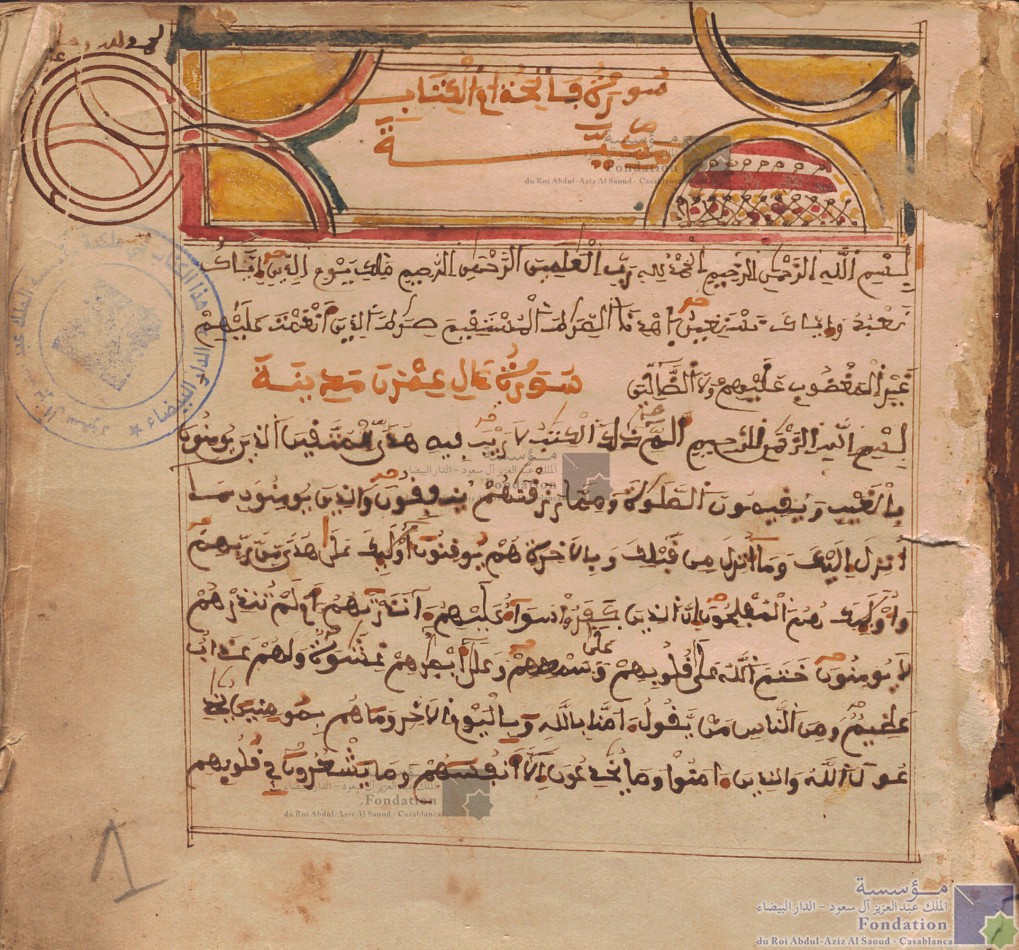 الحمد لله وحده
سورة فاتحة ام الكتاب
مكية
بسم الله الرحمن الرحيم الحمد لله رب العلمين الرحمن الرحيم ملك يوم الدين اياك
نعبد واياك نستعين اهدنا الصرط المستقيم صرط الذين انعمت عليهم
غير المغضوب عليهم ولا الضالين سورة ءال عمرن مدنية
بسم الله الرحمن الرحيم الم ذلك الكتب لا ريب فيه هدى للمتقين الذين يومنون
بالغيب ويقيمون الصلوة ومما رزقنهم ينفقون والذين يومنون بما
انزل اليك وما انزل من قبلك وبالاخرة هم يوقنون اوليك على هدى من ربهم
واوليك هم المفلحون ان الذين كفروا سواء عليهم ءانذرتهم ام لم تنذرهم
لا يومنون ختم الله على قلوبهم وعلى سمعهم وعلى ابصرهم غشوة ولهم عذاب
عظيم ومن الناس من يقول ءامنا بالله وباليوم الاخر وما هم بمومنين يخ
دعون الله والذين ءامنوا وما يخدعون الا انفسهم وما يشعرون في قلوبهم
مؤسسة
الملك عبد العزيز آل سعود - الدار البيضاء
Fondation
du Roi Abdul-Aziz Al Saoud - Casablanca